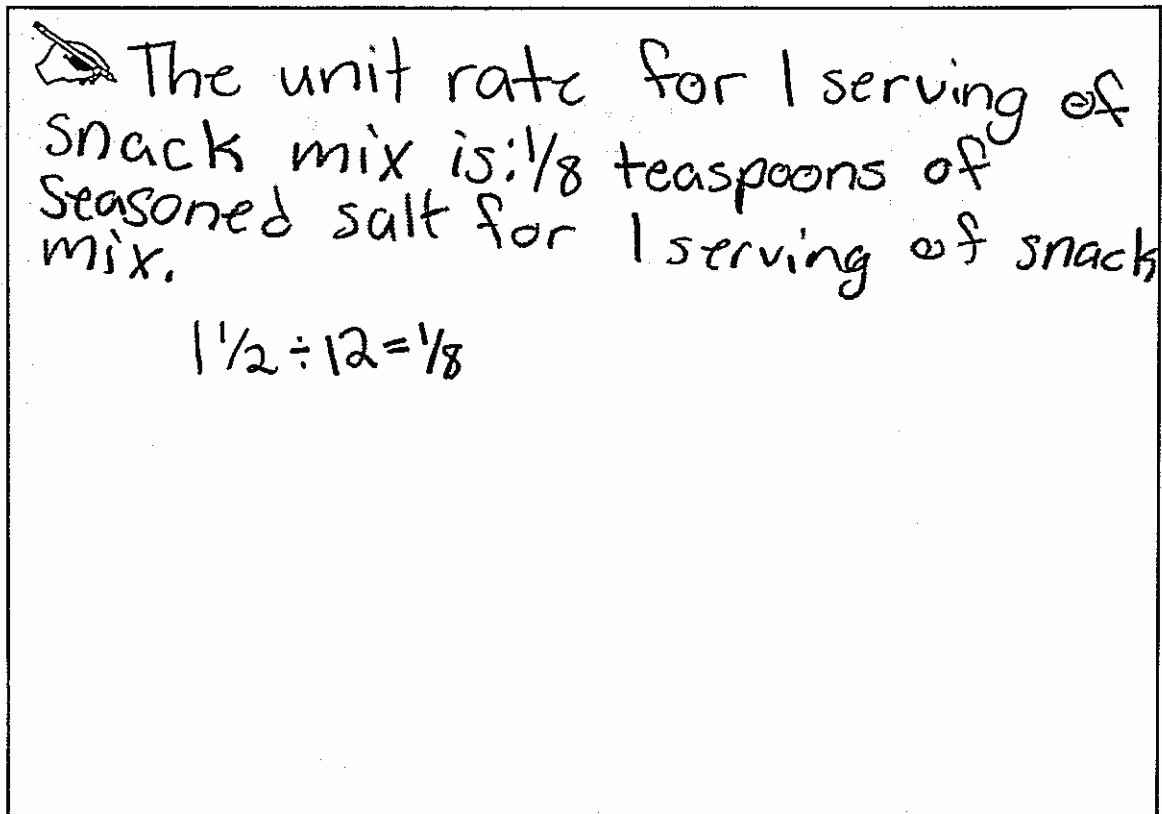 The unit rate for 1 serving of
snack mix is: 1/8 teaspoons of
seasoned salt for 1 serving of snack
mix.
1 1/2 ÷ 12 = 1/8